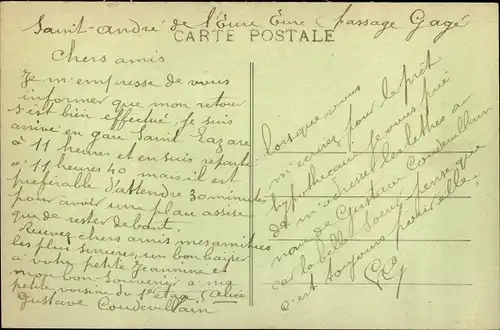 Saint-André de l'Eure Eure (passage Gagé
CARTE POSTALE
Chers amis
Je m'empresse de vous
informer que mon retour
s'est bien effectué, je suis
arrivé en gare Saint Lazare
à 11 heures et en suis reparti
à 11 heures 40 mais il est
préférable d'attendre 30 minutes
pour avoir une place assise
que de rester debout.
Recevez chers amis mes amitiés
les plus sincères, un bon baiser
à votre petite Jeannine et
mon bon souvenir à ma
petite voisine du 1er étage, Alice
Gustave Coudevillain
Lorsque vous
m'écrirez pour le prêt
hypothécaire je vous prie
de m'adresser les lettres au
nom de Gustave Coudevillain
car la belle Soeur pense que
c'est toujours pour elle.
CG